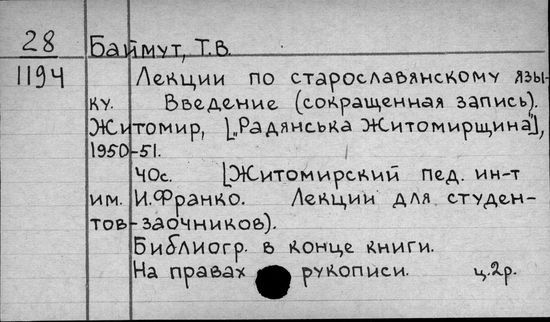 28
1194
Баймут, Т.В.
Лекции по старославянскому язы-
ку. Введение (сокращенная запись).
Житомир, [„Радянська Житомирщина"],
1950-51.
40с. [Житомирский пед. ин-т
им. И.Франко. Лекции для студен-
тов-заочников).
Библиогр. в конце книги.
На правах рукописи. ц.2р.